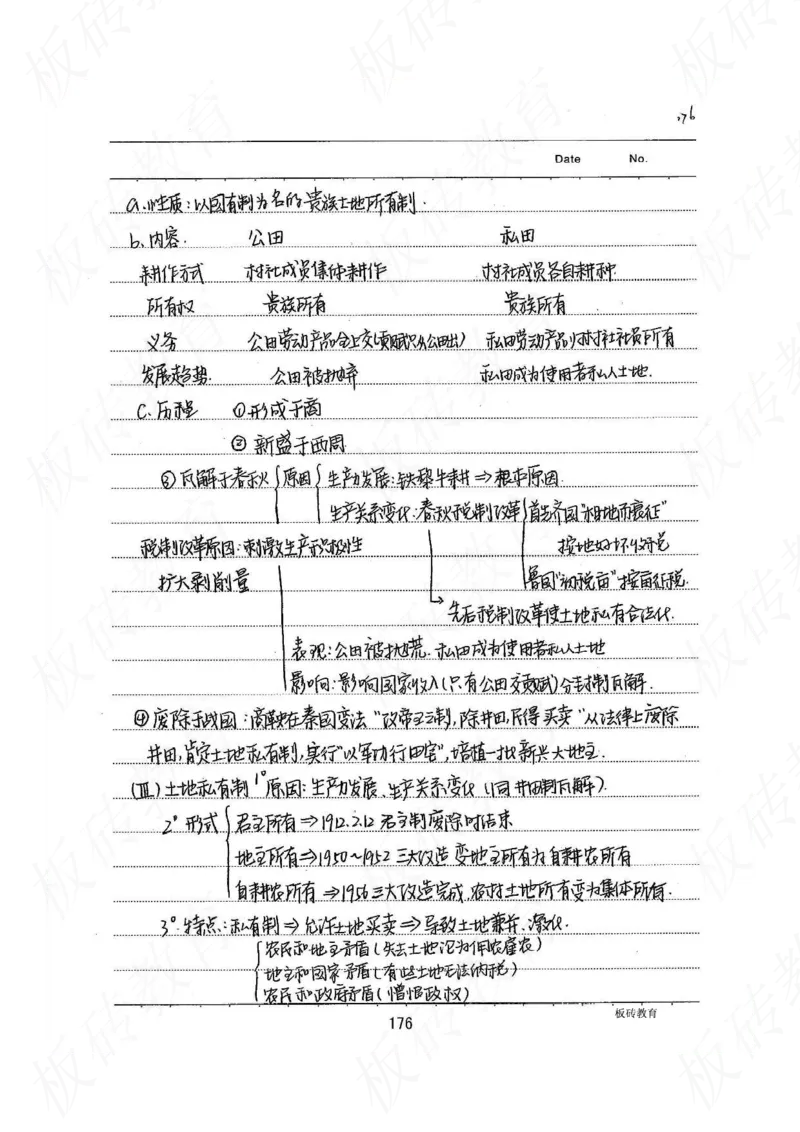 176
Date No.
a.性质:以国有制为名的贵族土地所有制.
b.内容. 公田 私田
耕作方式 村社成员集体耕作 村社成员各自耕种
所有权 贵族所有 贵族所有
义务 公田劳动产品全上交(贡赋只从公田出) 私田劳动产品归村社社员所有
发展趋势. 公田被抛弃 私田成为使用者私人土地.
C.历程 ①形成于商
② 新盛于西周
③瓦解于春秋 原因 生产力发展:铁犁牛耕⇒根本原因.
生产关系变化:春秋税制改革 首先齐国"相地而衰征"
税制改革原因:刺激生产积极性 按地好坏收税
扩大剥削量 鲁国"初税亩"按亩征税.
先后税制改革使土地私有合法化.
表现:公田被抛荒.私田成为使用者私人土地
影响:影响国家收入(只有公田交贡赋)分封制瓦解.
④废除于战国:商鞅在秦国变法"改帝王之制,除井田,民得买卖"从法律上废除
井田,肯定土地私有制,实行"以军功行田宅",培植一批新兴大地主.
(Ⅲ)土地私有制 1°原因:生产力发展、生产关系变化(同井田制瓦解).
2°形式 君主所有⇒1912.2.12 君主制废除时结束
地主所有⇒1950~1952 三大改造 变地主所有为自耕农所有
自耕农所有⇒1956三大改造完成,农村土地所有变为集体所有.
3°.特点:私有制⇒允许土地买卖⇒导致土地兼并、激化.
农民和地主矛盾(失去土地沦为佃农雇农)
地主和国家矛盾(有些土地无法纳税)
农民和政府矛盾(憎恨政权)
176
板砖教育